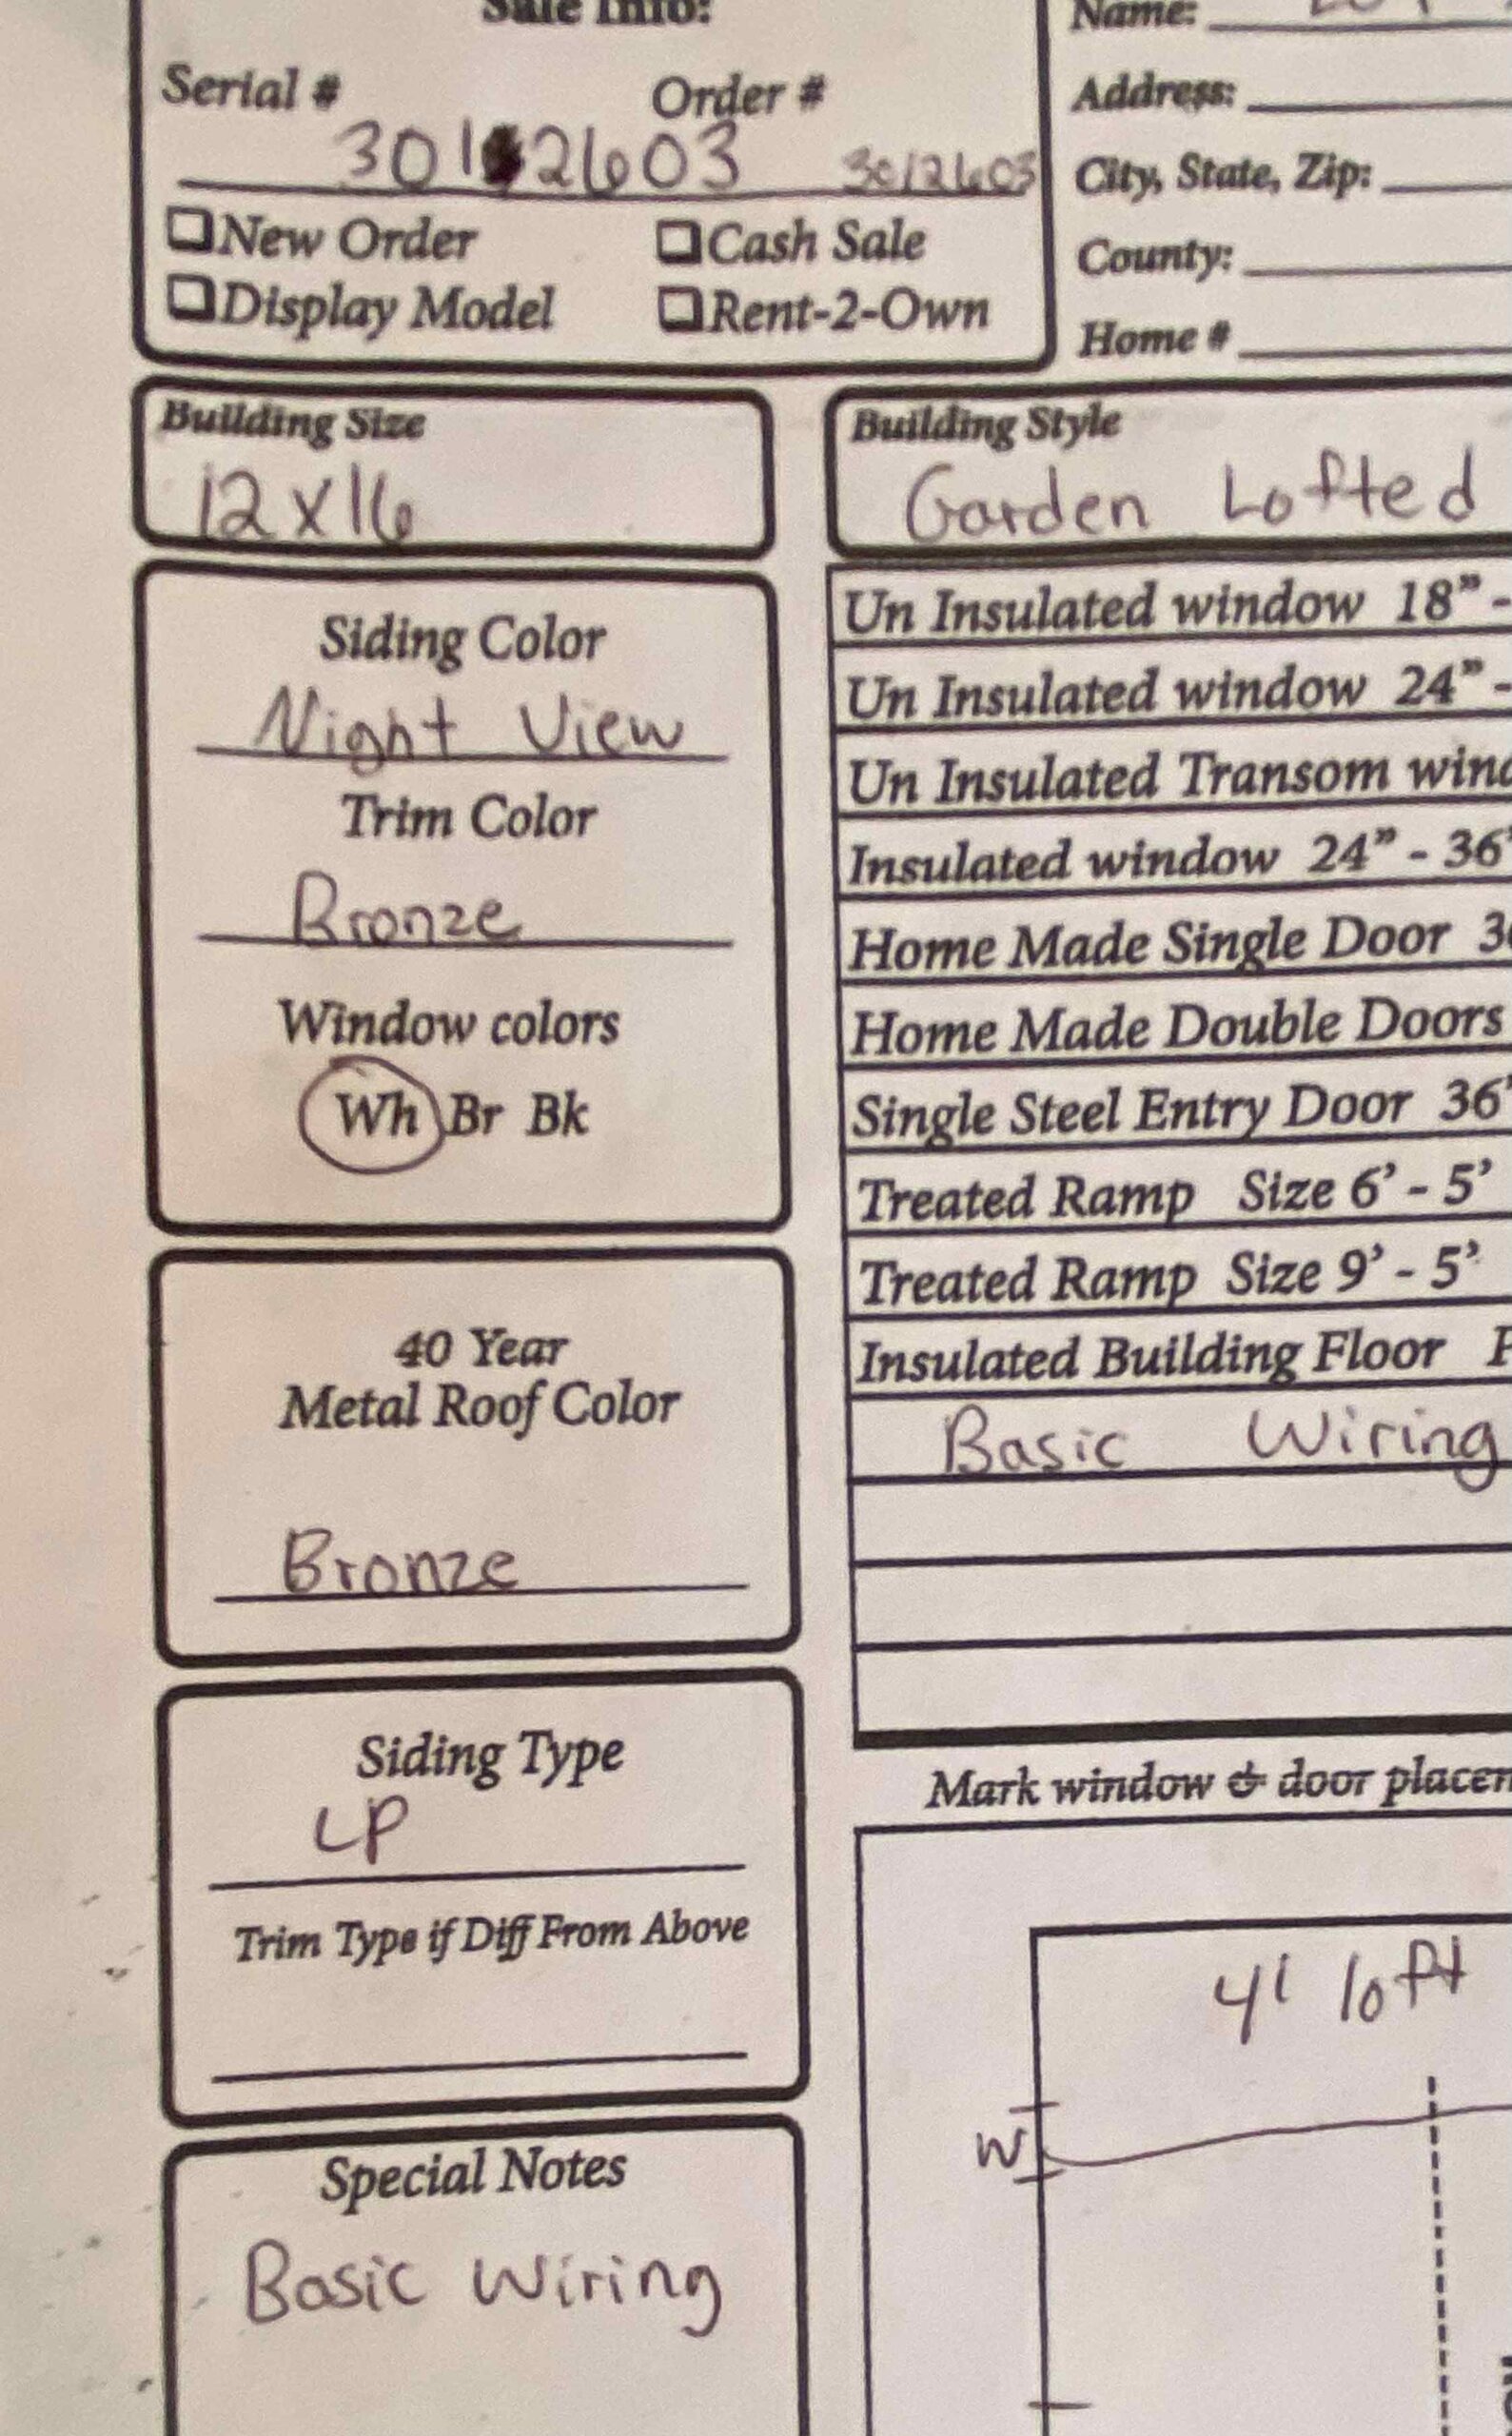 Sale Info:
Serial # Order #
3012603 3012603
❑New Order ❑Cash Sale
❑Display Model ❑Rent-2-Own
Name:
Address:
City, State, Zip:
County:
Home #
Building Size
12x16
Building Style
Garden Lofted
Siding Color
Night View
Trim Color
Bronze
Window colors
Wh Br Bk
40 Year
Metal Roof Color
Bronze
Siding Type
LP
Trim Type if Diff From Above
Special Notes
Basic Wiring
Un Insulated window 18" -
Un Insulated window 24" -
Un Insulated Transom
Insulated window 24" - 36"
Home Made Single Door
Home Made Double Doors
Single Steel Entry Door 36"
Treated Ramp Size 6' - 5'
Treated Ramp Size 9' - 5'
Insulated Building Floor
Basic Wiring
Mark window & door
4' loft
W